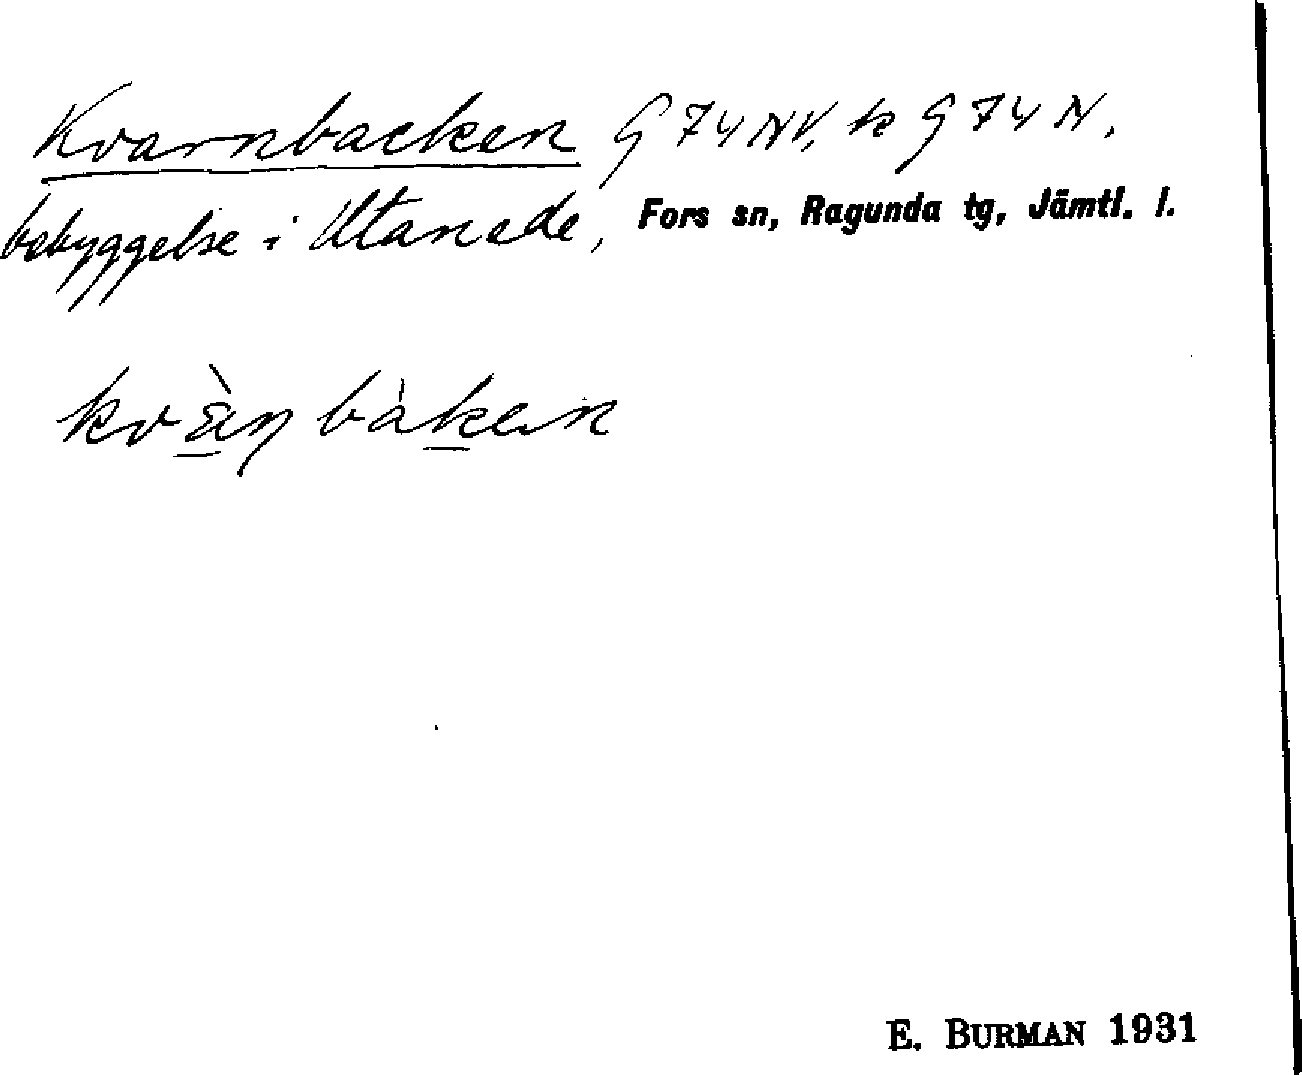 Kvarnbacken G 74 NV, k G 74 N.
bebyggelse i Utanede, Fors sn, Ragunda tg, Jämtl. l.
bàken
E. BURMAN 1931